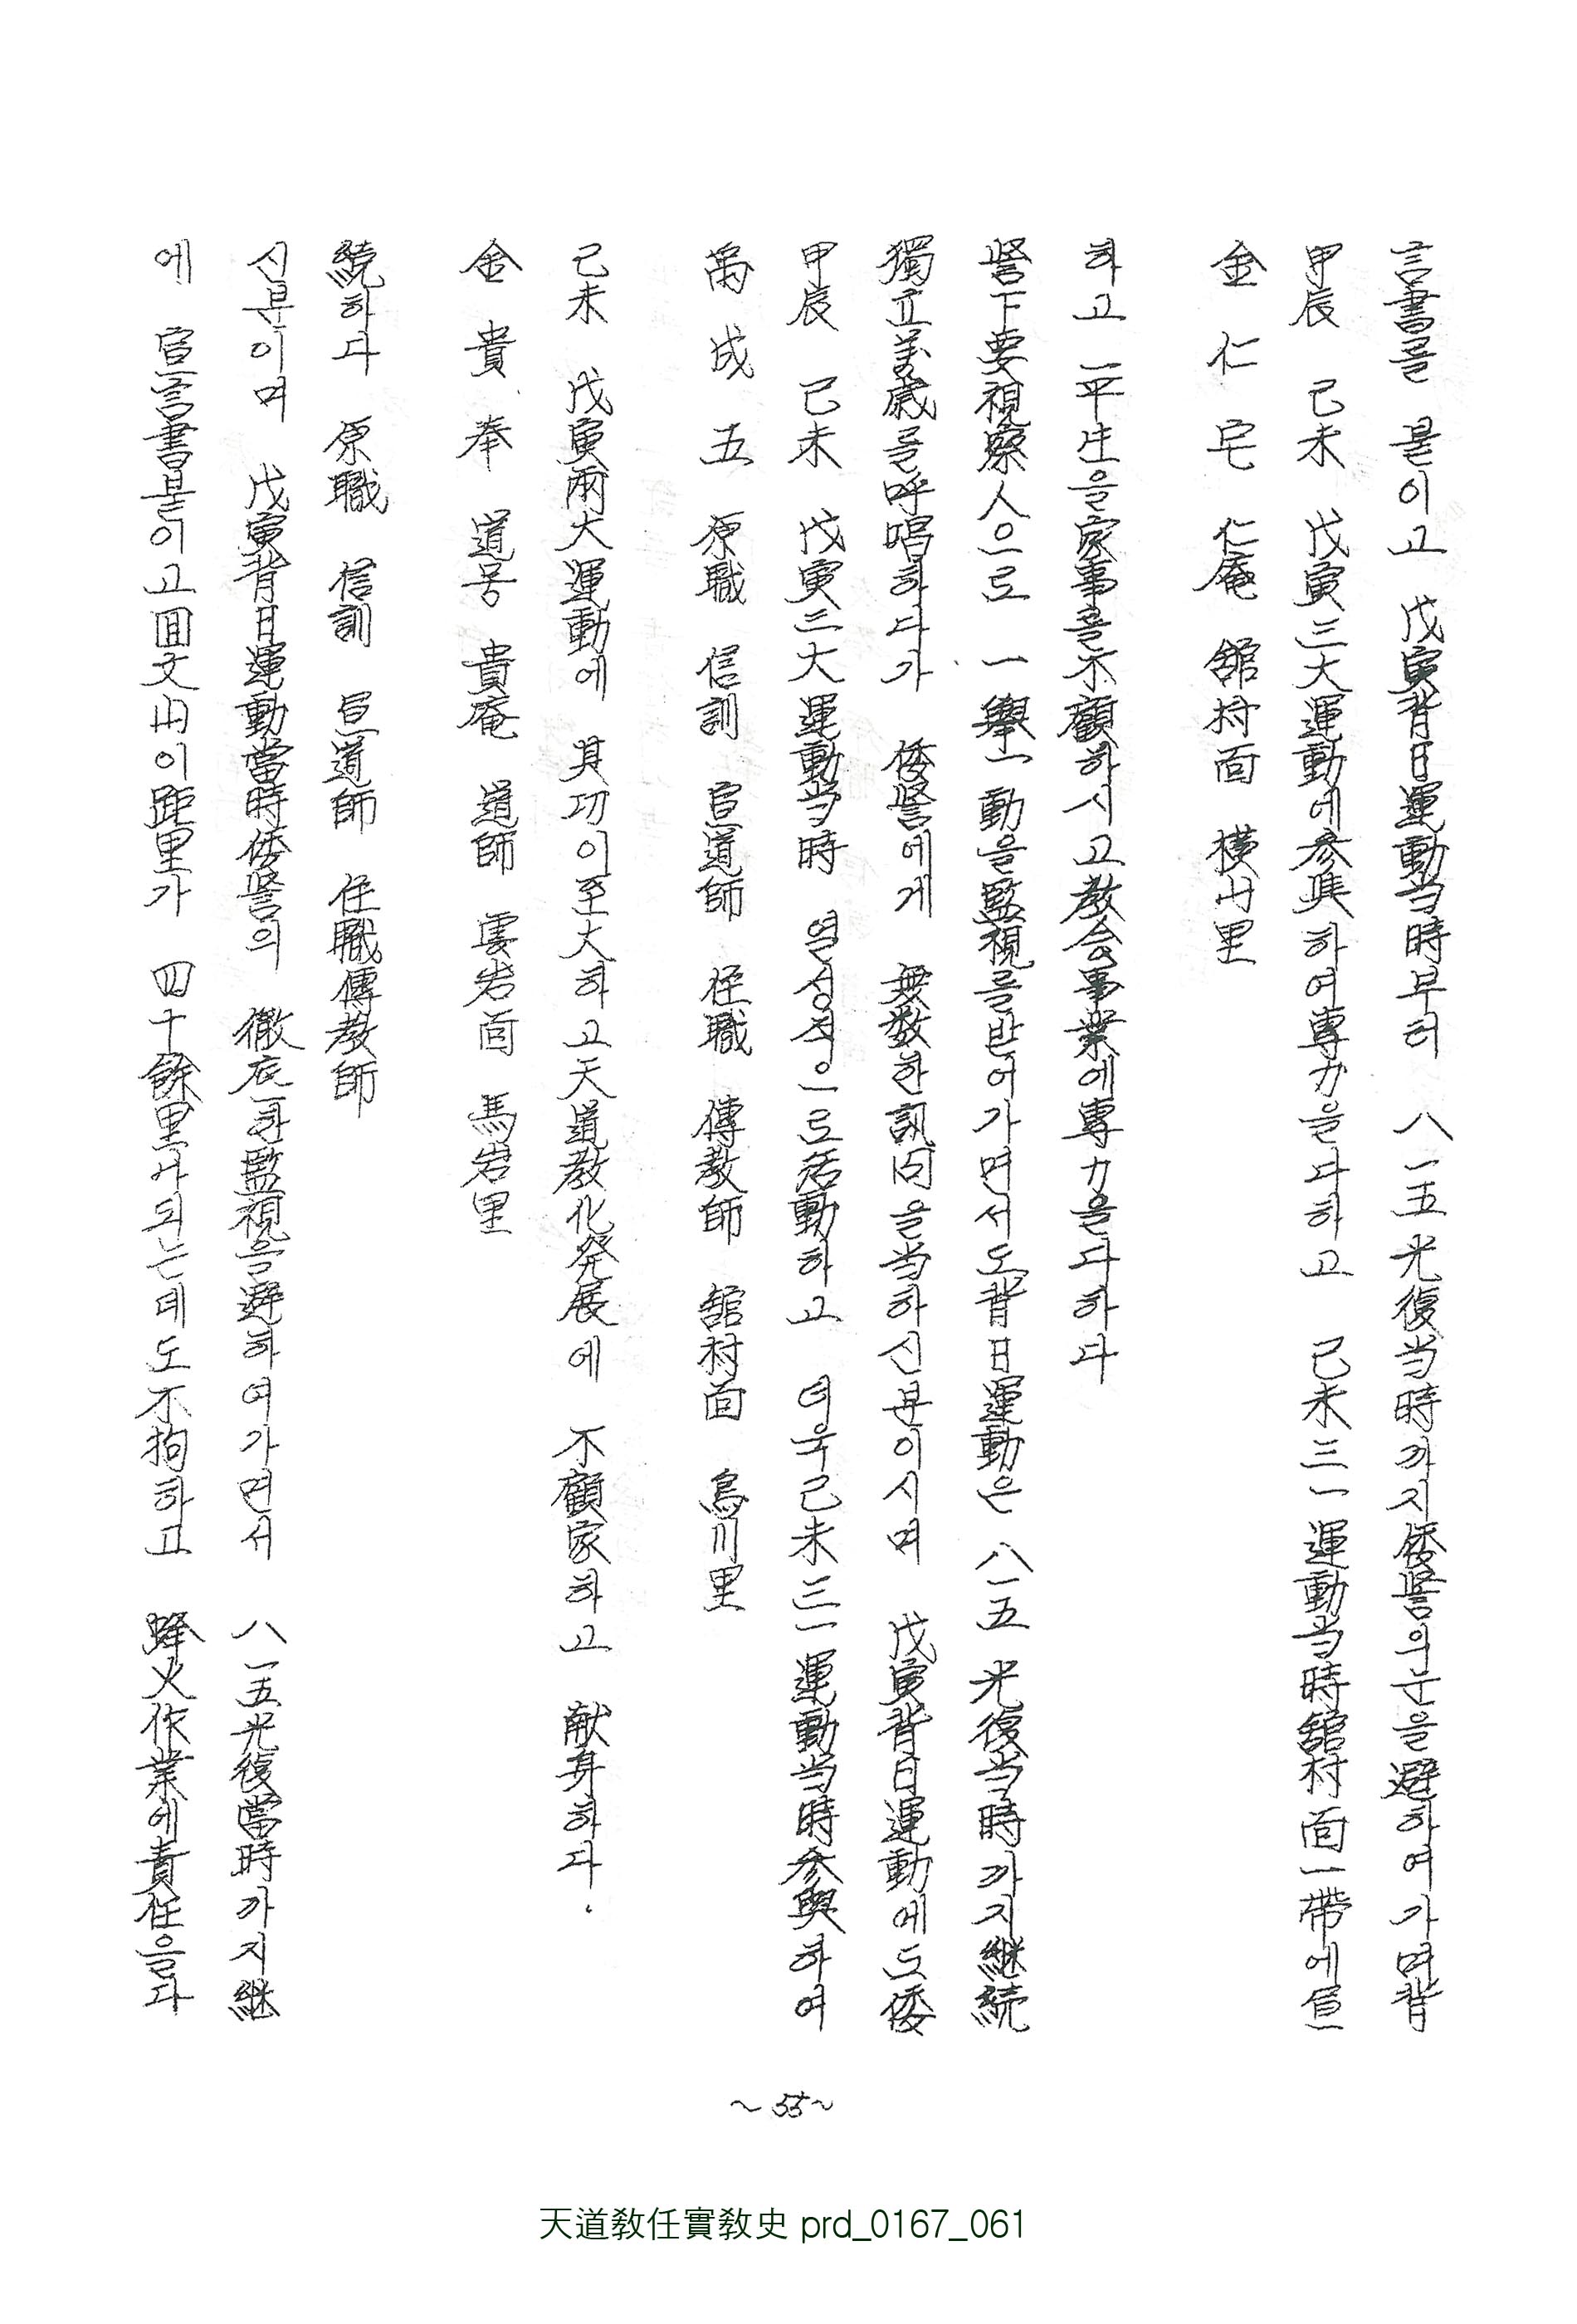 에 宣言書붙이고 回文山이距里가 四十餘里나되는데도不拘하고 烽火作業에責任을다
신분이며 戊寅背日運動當時倭警의 徹底한監視를避하여가면서 八一五光復當時까지継
続하다 原職 信訓 宣道師 任職傳教師
金貴奉 道号 貴庵 道師 雲岩面 馬岩里
己未 戊寅兩大運動에 其功이至大하고天道教化発展에 不顧家하고 献身하다.
禹成五 原職 信訓 宣道師 任職 傳教師 舘村面 烏川里
甲辰 己未 戊寅三大運動当時 열성적으로活動하고 더욱己未三一運動当時参與하여
獨立萬歳를呼唱하다가 倭警에게 無数한訊问을当하신분이시며 戊寅背日運動에도倭
警下要視察人으로 一擧一動을監視를받어가면서도背日運動은 八一五 光復当時까지継続
하고 一平生을家事를不顧하시고教会事業에專力을다하다
金仁宅 仁庵 舘村面 橫山里
甲辰 己未 戊寅三大運動에参與하여專力을다하고 己未三一運動当時舘村面一帶에宣
言書를 붙이고 戊寅背日運動当時부터 八一五光復当時까지倭警의눈을避하여가며背
~55~
天道敎任實敎史 prd_0167_061